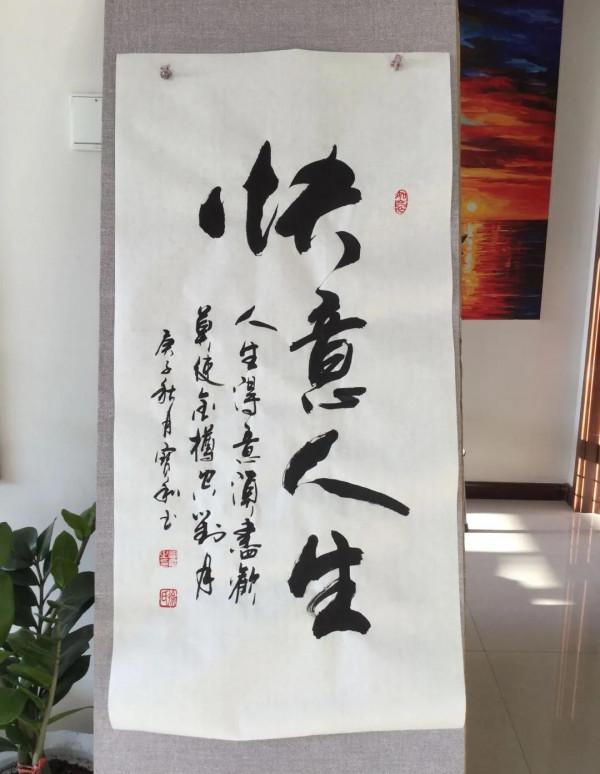 快意人生
人生得意須盡歡
莫使金樽空對月
庚子秋月寶和书